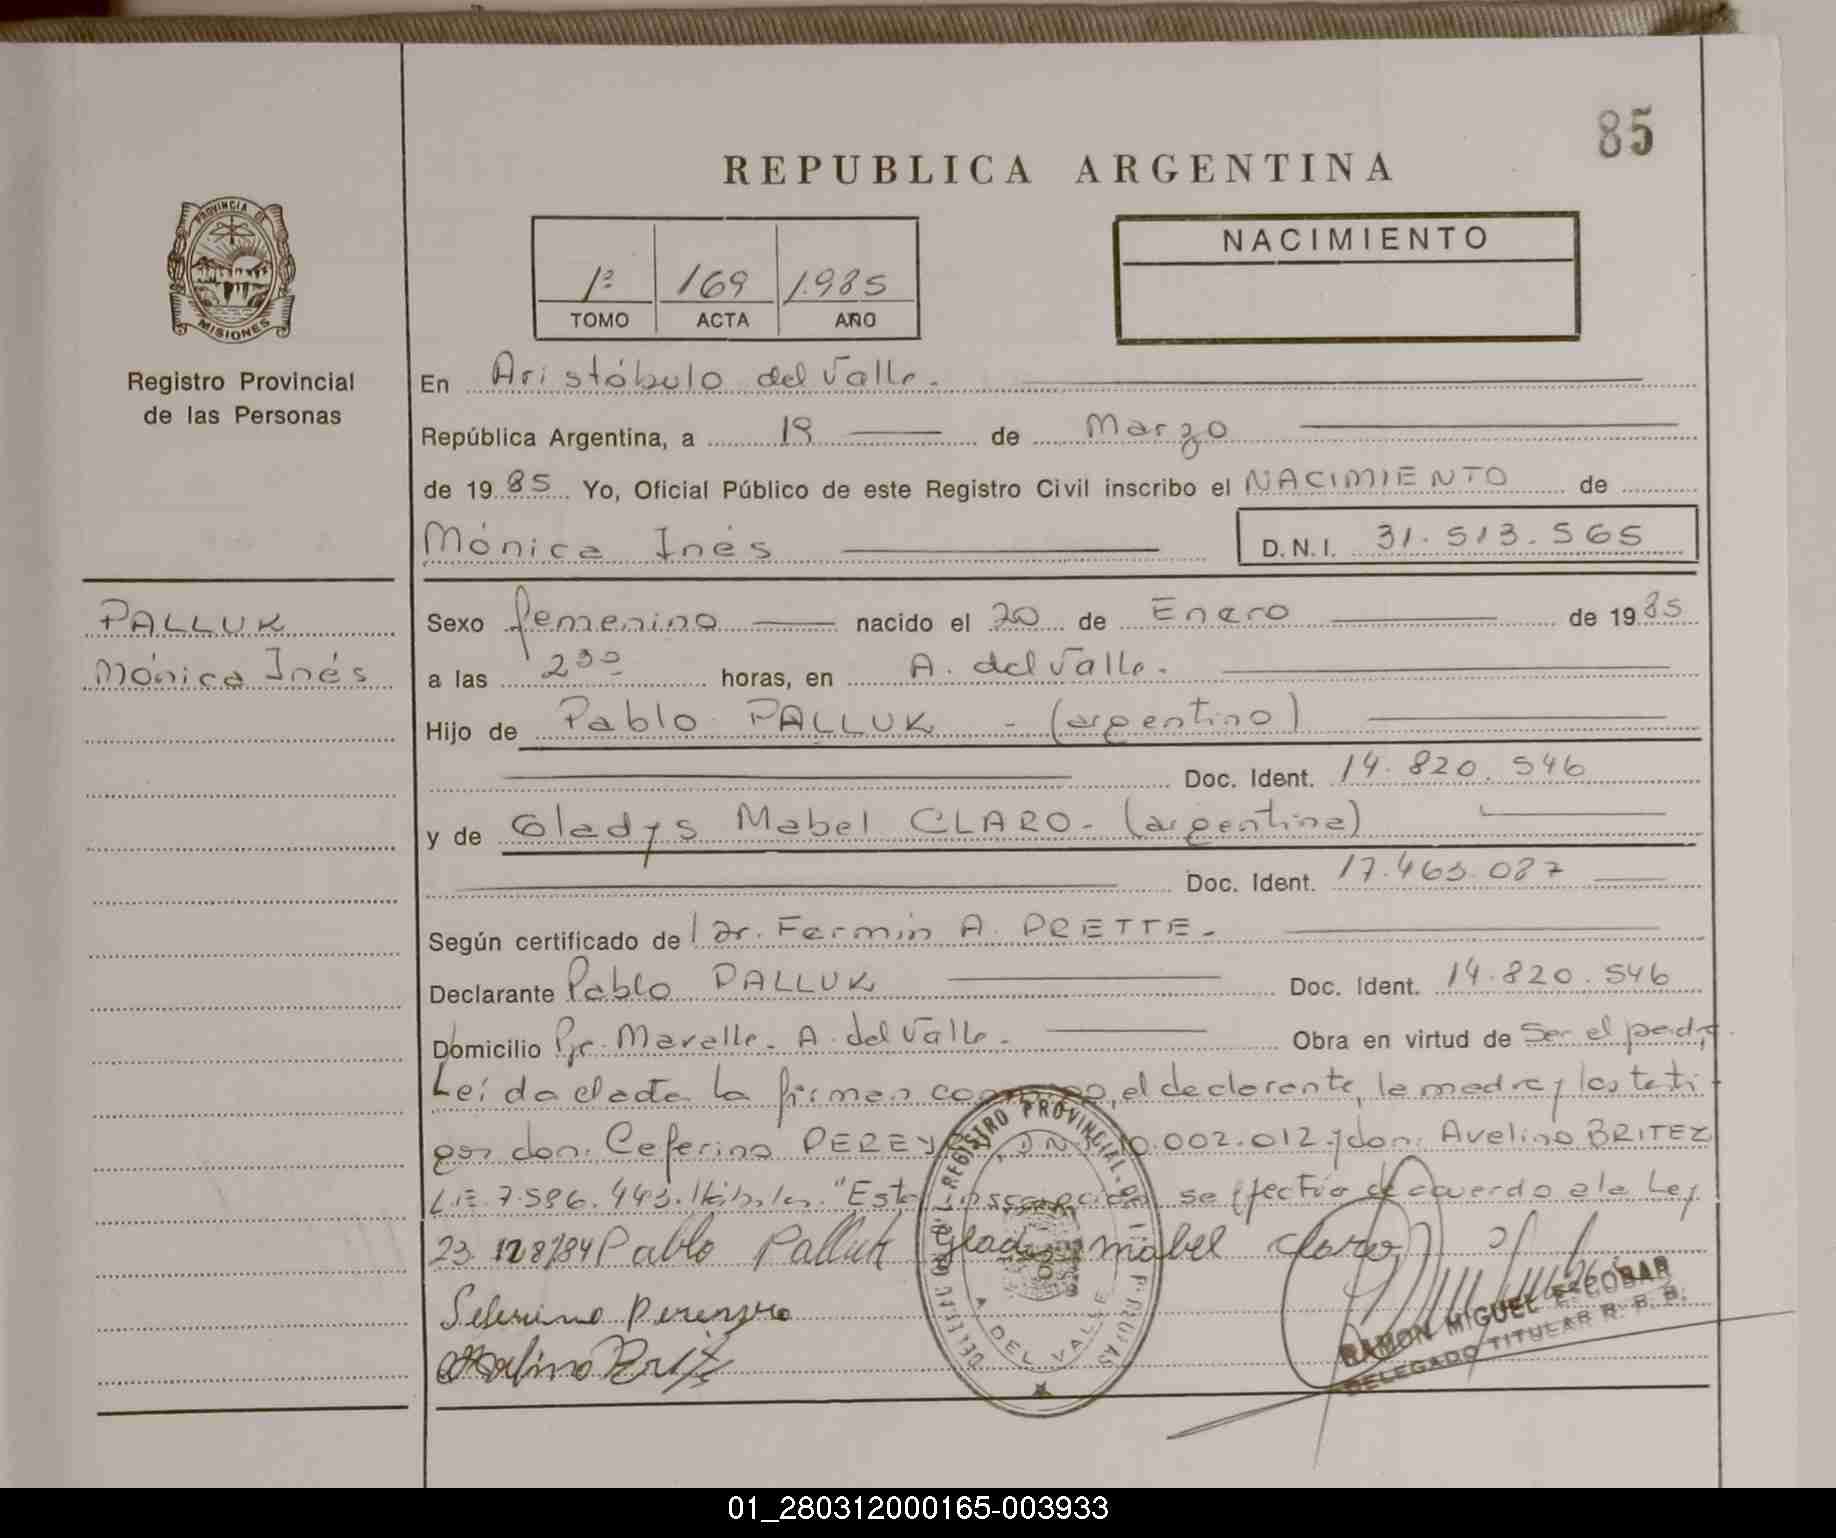 85
REPUBLICA ARGENTINA
PROVINCIA DE
MISIONES
Registro Provincial
de las Personas
1º 169 1.985
TOMO ACTA AÑO
NACIMIENTO
En Aristóbulo del Valle.
República Argentina, a 19 de Marzo
de 1985 Yo, Oficial Público de este Registro Civil inscribo el NACIMIENTO de
Mónica Inés
D.N.I. 31.513.565
PALLUK
Mónica Inés
Sexo femenino nacido el 20 de Enero de 1985
a las horas, en A. del Valle.
Hijo de Pablo PALLUK - (argentino)
Doc. Ident. 14.820.546
y de Gladys Mabel CLARO - (argentina)
Doc. Ident. 17.463.087
Según certificado de Dr. Fermin A. PRETTE.
Declarante Pablo PALLUK Doc. Ident. 14.820.546
Domicilio A. del Valle. Obra en virtud de Ser el padre
Leída el acta la firman el declarante, la madre y los testi-
gos don: Ceferino PEREYRA, DNI 10.002.012 y don: Avelino BRITEZ
L.E. 7.586.443. "Esta inscripción se efectúa de acuerdo a la Ley
23.128/84 Pablo Palluk Gladys mabel claro
REGISTRO PROVINCIAL DE
A. DEL VALLE
RAMON MIGUEL ESCOBAR
DELEGADO TITULAR R. P. P.
01_280312000165-003933